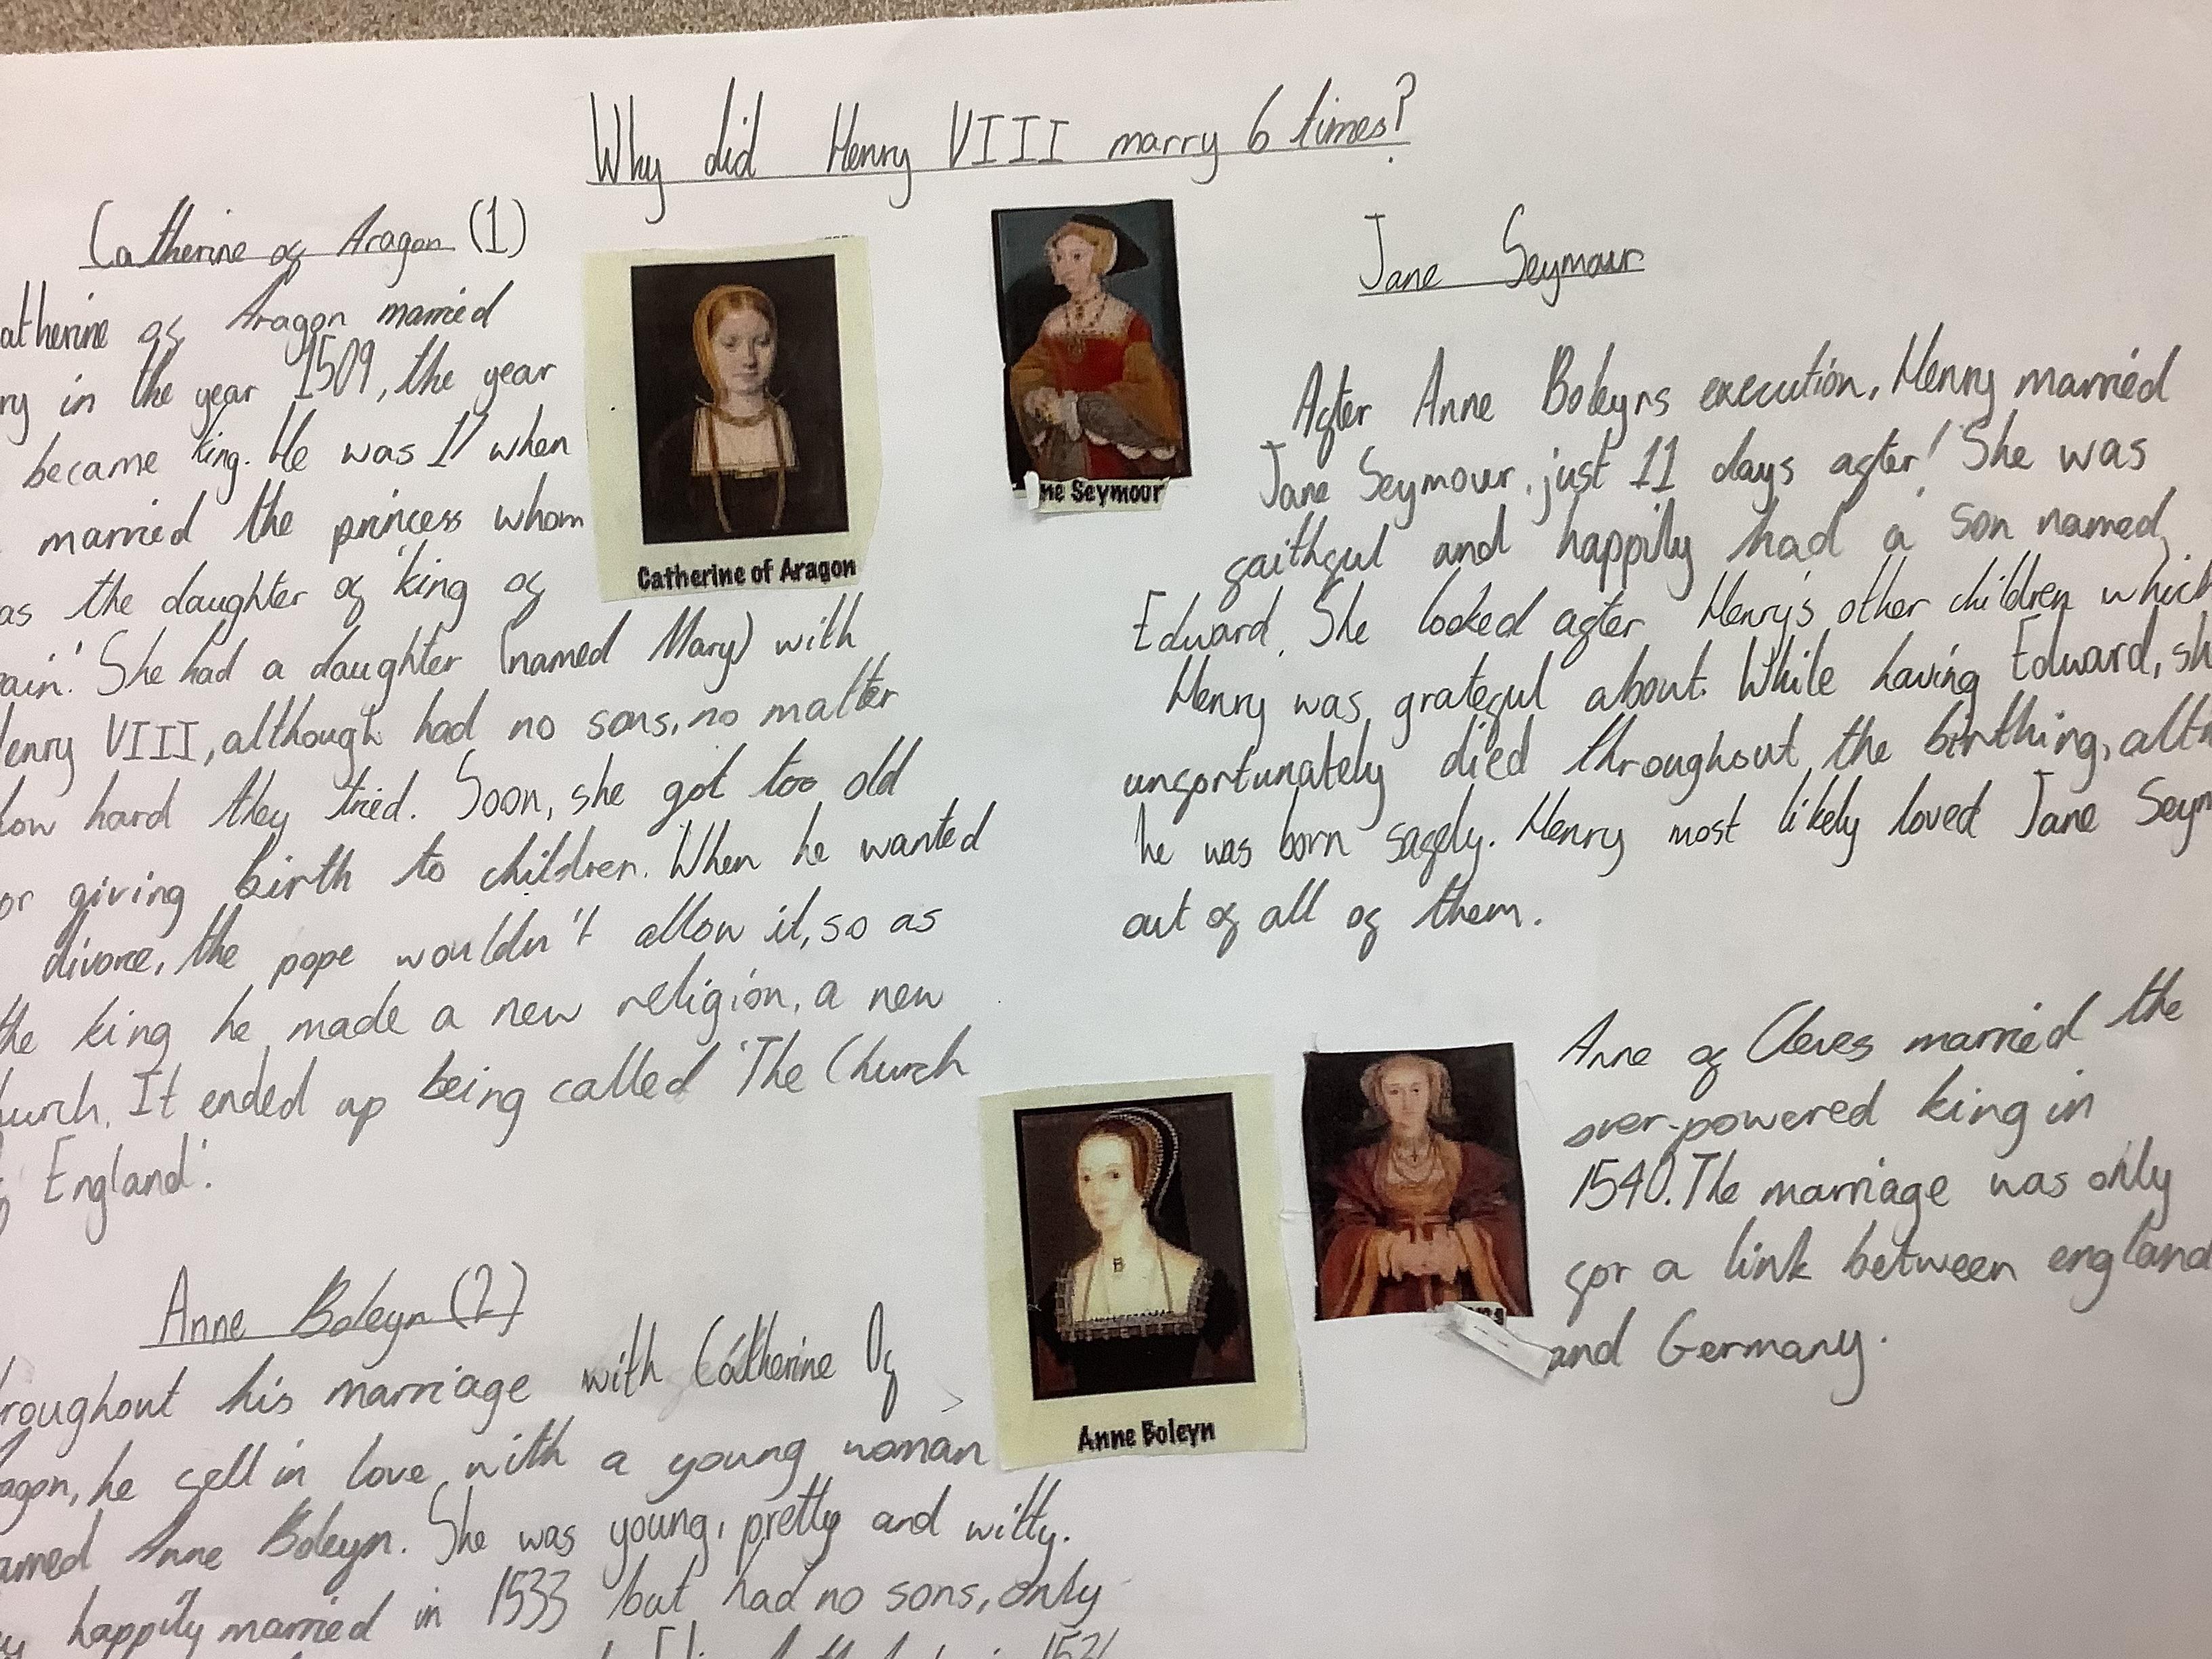 Why did Henry VIII marry 6 times?
Catherine of Aragon (1)
atherine of Aragon married
ry in the year 1509, the year
became king. He was 17 when
married the princess whom
as the daughter of 'king of
ain.' She had a daughter (named Mary) with
Henry VIII, although had no sons, no matter
how hard they tried. Soon, she got too old
or giving birth to children. When he wanted
divorce, the pope wouldn't allow it, so as
the king he made a new religion, a new
hurch. It ended up being called 'The Church
England'.
Catherine of Aragon
Anne Boleyn (2)
roughout his marriage with Catherine Of
agon, he fell in love with a young woman
amed Anne Boleyn. She was young, pretty and witty.
happily married in 1533 but had no sons, only
Anne Boleyn
ne Seymour
Jane Seymour
After Anne Boleyns execution, Henry married
Jane Seymour, just 11 days after! She was
faithful and happily had a son named
Edward. She looked after Henry's other children which
Henry was grateful about. While having Edward, sh
unfortunately died throughout the birthing, alth
he was born safely. Henry most likely loved Jane Seym
out of all of them.
Anne of Cleves married the
over-powered king in
1540. The marriage was only
for a link between england
and Germany.